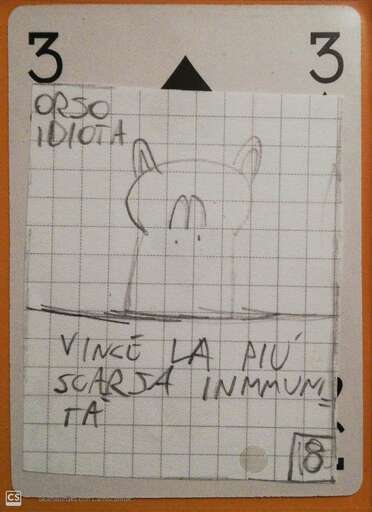 3 3
ORSO
IDIOTA
VINCE LA PIÚ
SCARSA INMMUNI=
TÀ
18
CS